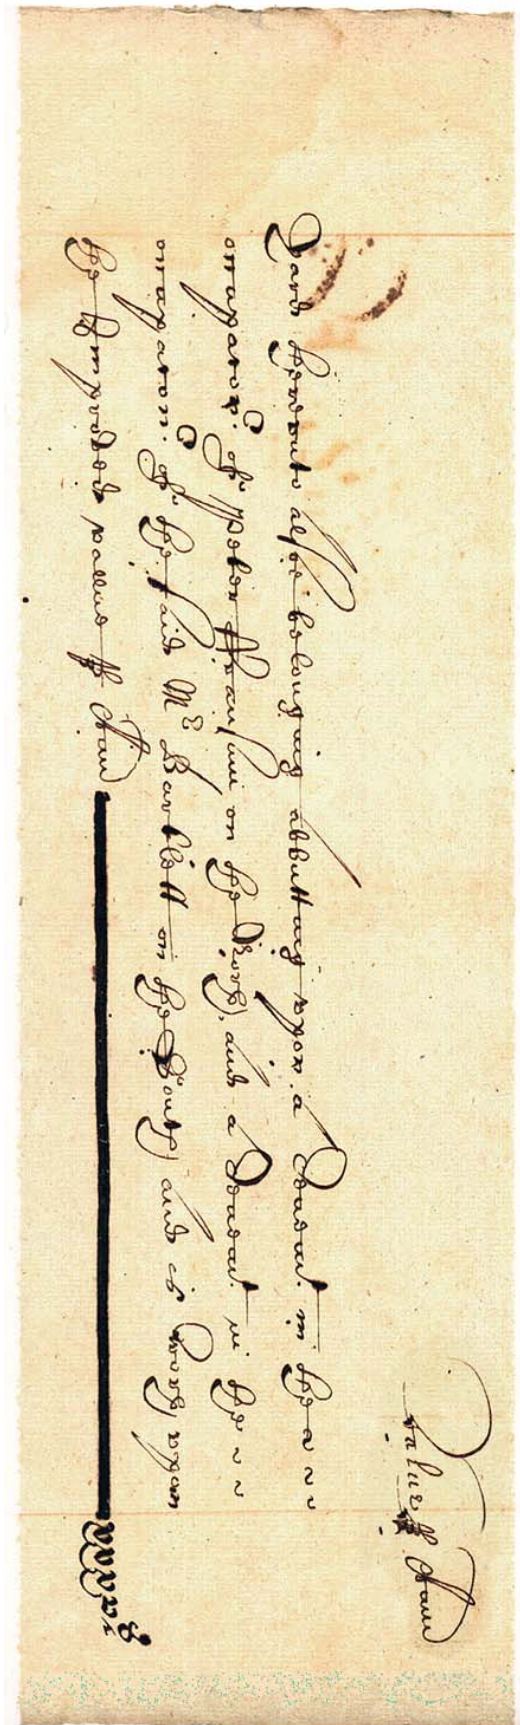 value p Ann
Yard thereunto alsoe belonging abbutting upon a Tenemt. in the
occupacon. of Peter Fransam on the North, and a Tenemt. in the
occupacon. of the said Mr Bartlett on the South, and is worth upon
the Improved vallue p Ann
xxxvi l